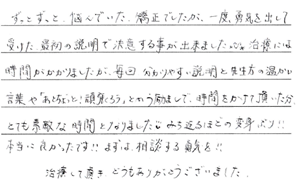 ずっとずっと、悩んでいた、矯正でしたが、一度勇気を出して
受けた最初の説明で決意する事が出来ました。治療には
時間がかかりましたが、毎回 分かりやすい説明と先生方の温かい
言葉や「あと少しだ!頑張ろう」という励ましで、時間をかけて頂いた分
とても素敵な時間となりました。みち返るほどの変身ぶり!!
本当に良かったです!! まずは、相談する勇気を!!
治療して頂き どうもありがとうございました。